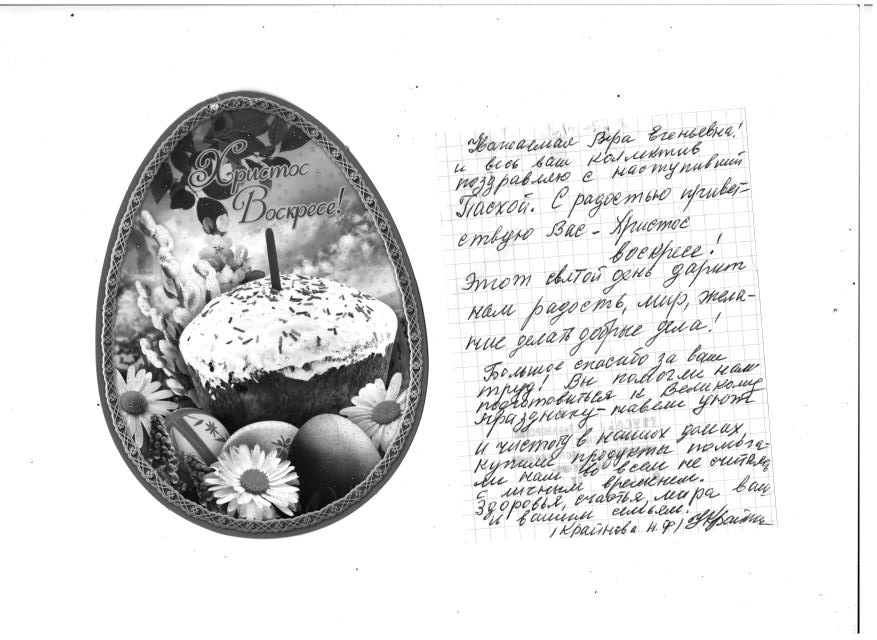 Христос
Воскресе!
Уважаемая Вера Егеньевна!
и весь ваш коллектив
поздравляю с наступившей
Пасхой. С радостью привет-
ствую Вас - Христос
воскресе!
Этот святой день дарит
нам радость, мир, жела-
ние делать добрые дела!
Большое спасибо за ваш
труд! Вы помогли нам
подготовиться к Великому
празднику - навели уют
и чистоту в наших домах,
купили продукты помога-
ли нам во всем не считаясь
с личным временем.
Здоровья, счастья, мира вам
и вашим семьям.
(Крайнова Н.Ф)